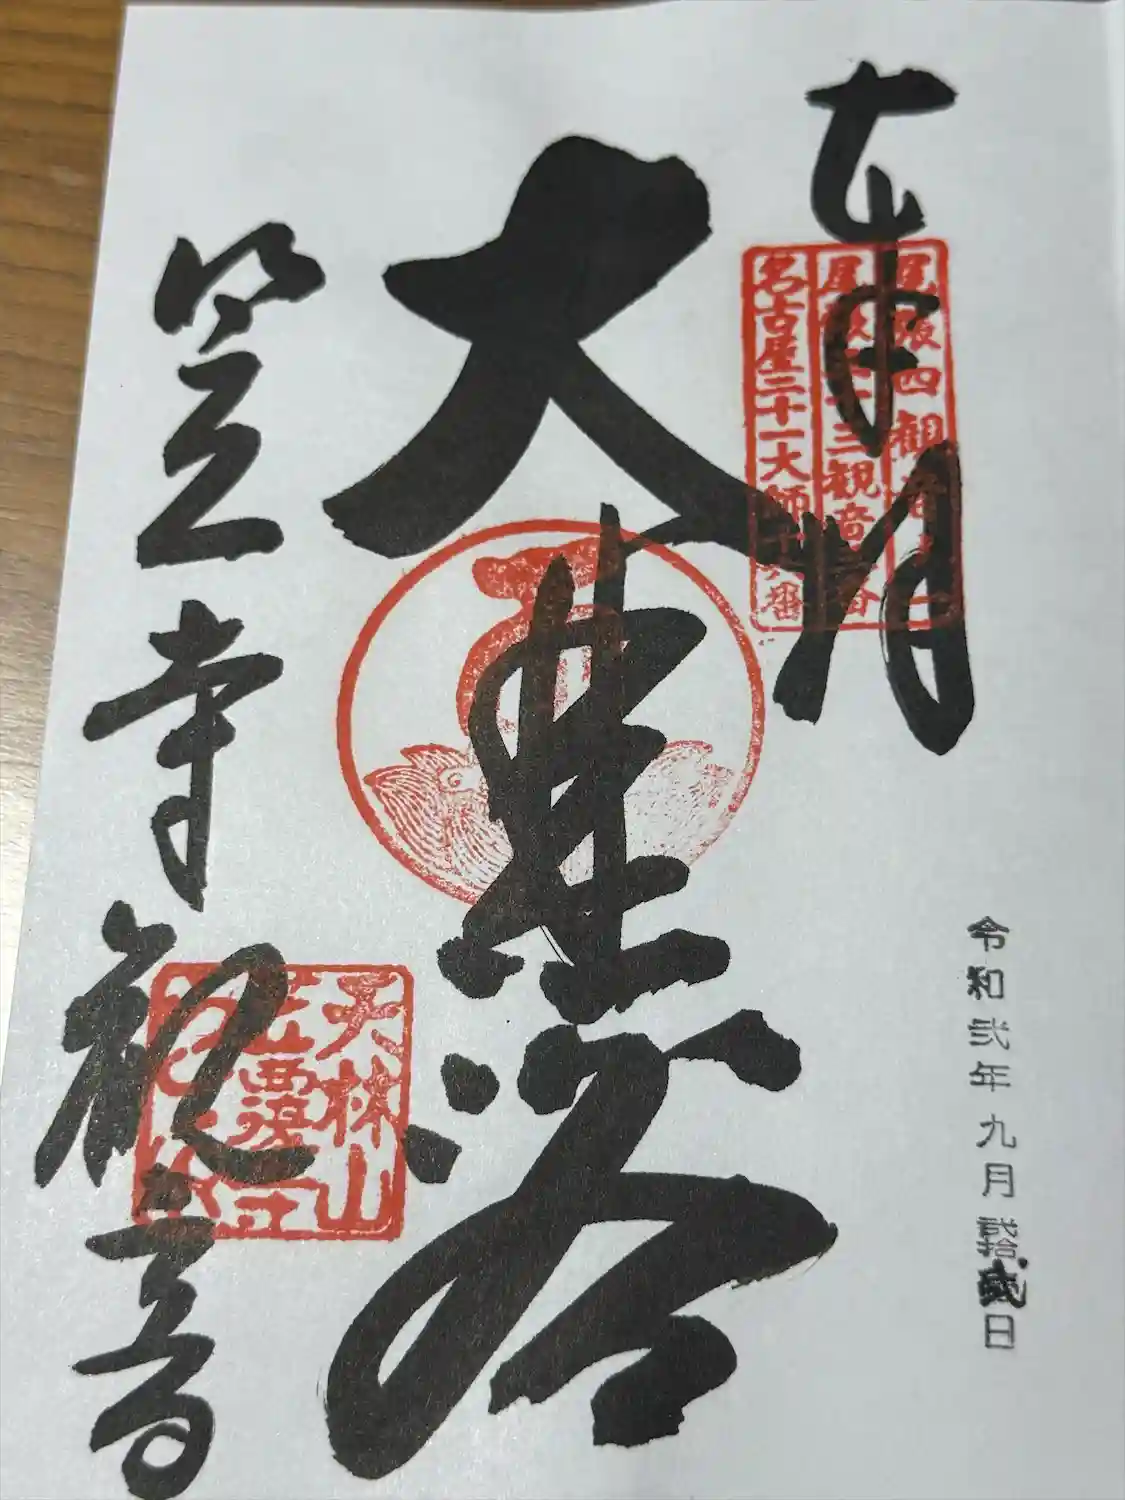 奉拝
尾張四観音
尾張三十三観音一番
名古屋二十一大師十六番
令和弐年九月弐拾弐日
大悲閣
笠寺観音
天林山
笠覆寺